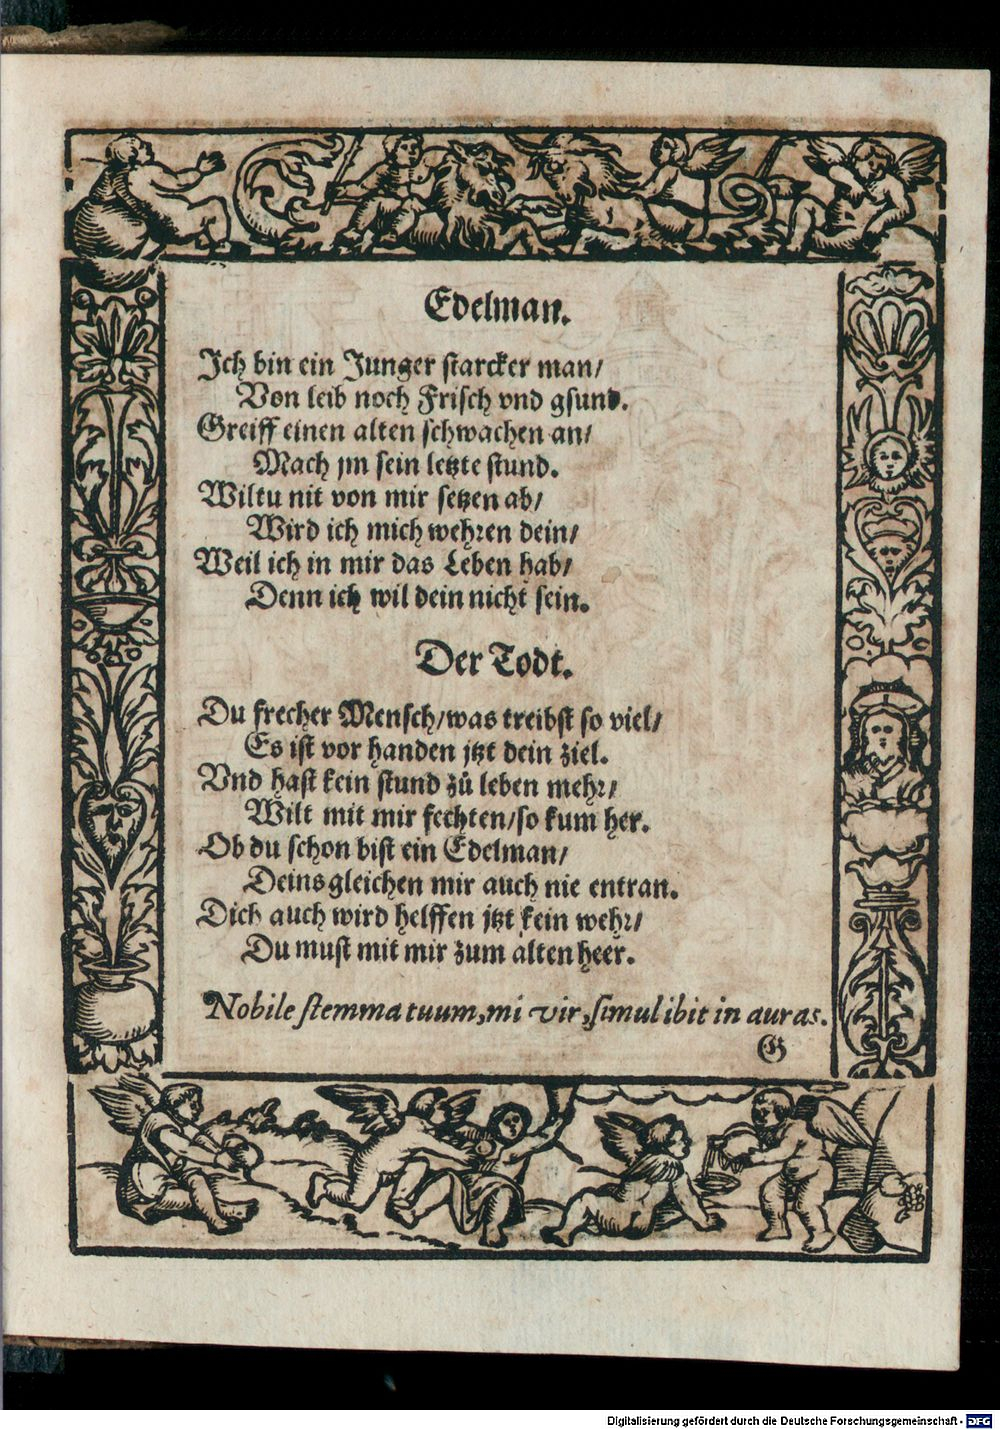 Edelman.
Ich bin ein Junger starcker man/
Von leib noch Frisch vnd gsund.
Greiff einen alten schwachen an/
Mach jm sein letzte stund.
Wiltu nit von mir setzen ab/
Wird ich mich wehren dein/
Weil ich in mir das Leben hab/
Denn ich wil dein nicht sein.
Der Todt.
Du frecher Mensch/was treibst so viel/
Es ist vor handen jtzt dein ziel.
Vnd hast kein stund zů leben mehr/
Wilt mit mir fechten/so kum her.
Ob du schon bist ein Edelman/
Deins gleichen mir auch nie entran.
Dich auch wird helffen jtzt kein wehr/
Du must mit mir zum alten heer.
Nobile stemma tuum, mi vir, simul ibit in auras.
G
Digitalisierung gefördert durch die Deutsche Forschungsgemeinschaft - DFG